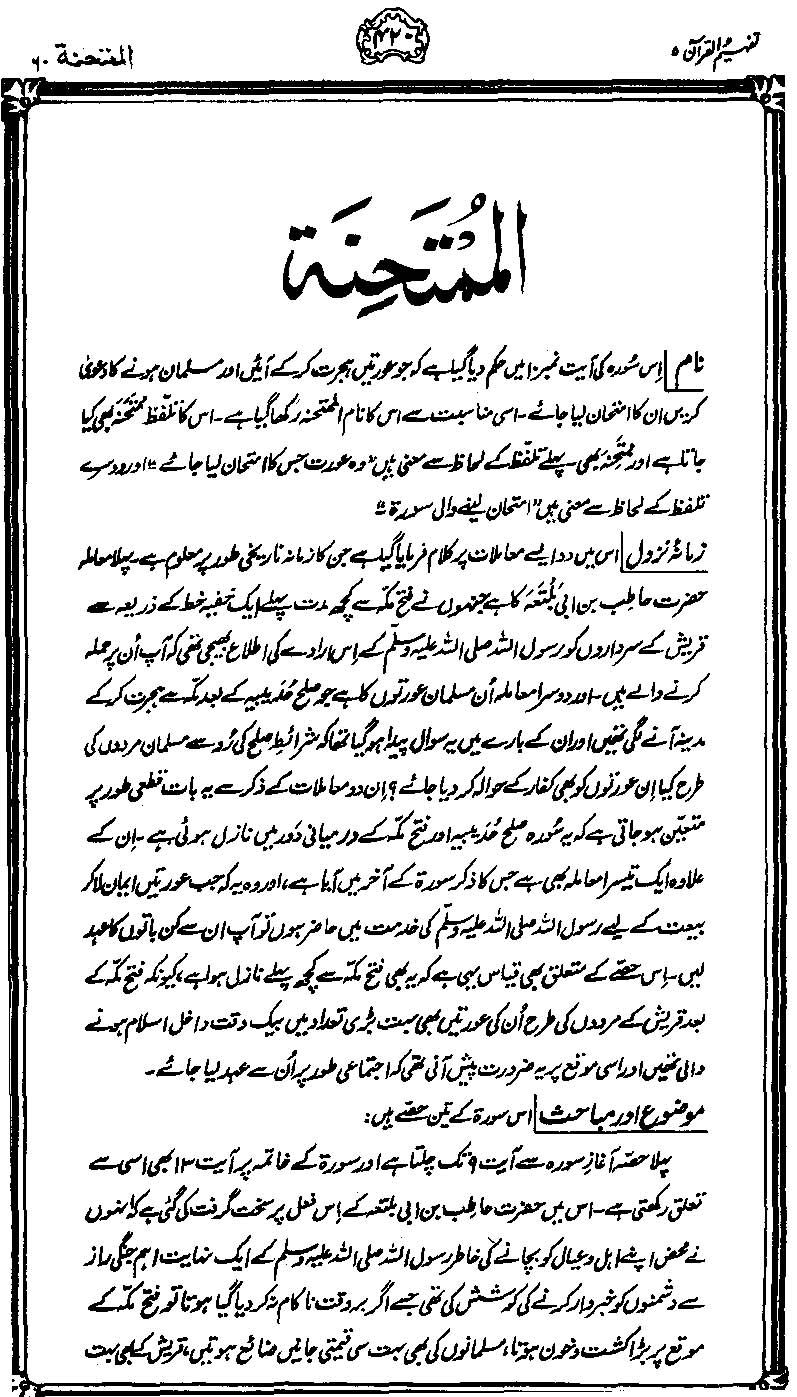 تفہیم القرآن ۵
۴۲۰
الممتحنۃ ۶۰
المُمتَحِنَة
نام اِس سُورہ کی آیت نمبر ۱۰ میں حکم دیا گیا ہے کہ جو عورتیں ہجرت کر کے آئیں اور مسلمان ہونے کا دعویٰ
کریں ان کا امتحان لیا جائے۔ اسی مناسبت سے اس کا نام الممتحنہ رکھا گیا ہے۔ اس کا تلفّظ مُمتَحَنَہ بھی کیا
جاتا ہے اور مُمتَحِنَہ بھی۔ پہلے تلفّظ کے لحاظ سے معنی ہیں "وہ عورت جس کا امتحان لیا جائے"۔ اور دوسرے
تلفّظ کے لحاظ سے معنی ہیں "امتحان لینے والی سورۃ"۔
زمانۂ نزول اس میں دو ایسے معاملات پر کلام فرمایا گیا ہے جن کا زمانہ تاریخی طور پر معلوم ہے۔ پہلا معاملہ
حضرت حاطِب بن ابی بَلْتَعَہ کا ہے جنہوں نے فتح مکّہ سے کچھ مدت پہلے ایک خفیہ خط کے ذریعہ سے
قریش کے سرداروں کو رسول اللہ صلی اللہ علیہ وسلّم کے اِس ارادے کی اطلاع بھیجی تھی کہ آپ اُن پر حملہ
کرنے والے ہیں۔ اور دوسرا معاملہ اُن مسلمان عورتوں کا ہے جو صلح حُدَیبیہ کے بعد مکّہ سے ہجرت کر کے
مدینہ آنے لگی تھیں اور ان کے بارے میں یہ سوال پیدا ہو گیا تھا کہ شرائطِ صلح کی رُو سے مسلمان مردوں کی
طرح کیا اِن عورتوں کو بھی کفار کے حوالہ کر دیا جائے؟ اِن دو معاملات کے ذکر سے یہ بات قطعی طور پر
متعیّن ہو جاتی ہے کہ یہ سُورہ صلح حُدَیبیہ اور فتح مکّہ کے درمیانی دَور میں نازل ہوئی ہے۔ اِن کے
علاوہ ایک تیسرا معاملہ بھی ہے جس کا ذکر سورۃ کے آخر میں آیا ہے، اور وہ یہ کہ جب عورتیں ایمان لا کر
بیعت کے لیے رسول اللہ صلی اللہ علیہ وسلّم کی خدمت میں حاضر ہوں تو آپ ان سے کن باتوں کا عہد
لیں۔ اِس حصّے کے متعلق بھی قیاس یہی ہے کہ یہ بھی فتح مکّہ سے کچھ پہلے نازل ہوا ہے، کیونکہ فتح مکّہ کے
بعد قریش کے مردوں کی طرح اُن کی عورتیں بھی بہت بڑی تعداد میں بیک وقت داخلِ اسلام ہونے
والی تھیں اور اسی موقع پر یہ ضرورت پیش آنی تھی کہ اجتماعی طور پر اُن سے عہد لیا جائے۔
موضوع اور مباحث اس سورۃ کے تین حصّے ہیں:
پہلا حصّہ آغازِ سورہ سے آیت ۹ تک چلتا ہے اور سورۃ کے خاتمہ پر آیت ۱۳ بھی اسی سے
تعلق رکھتی ہے۔ اس میں حضرت حاطِب بن ابی بلتعہ کے اِس فعل پر سخت گرفت کی گئی ہے کہ انہوں
نے محض اپنے اہل و عیال کو بچانے کی خاطر رسول اللہ صلی اللہ علیہ وسلّم کے ایک نہایت اہم جنگی راز
سے دشمنوں کو خبردار کرنے کی کوشش کی تھی جسے اگر بروقت ناکام نہ کر دیا گیا ہوتا تو فتح مکّہ کے
موقع پر بڑا کشت و خون ہوتا، مسلمانوں کی بھی بہت سی قیمتی جانیں ضائع ہوتیں، قریش کے بھی بہت